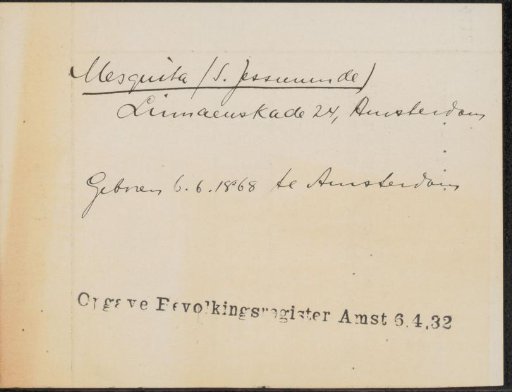 Mesquita (S. Jessurunde)
Linnaeuskade 24, Amsterdam
Geboren 6.6.1868 te Amsterdam
Opgave Bevolkingsregister Amst 6.4.32